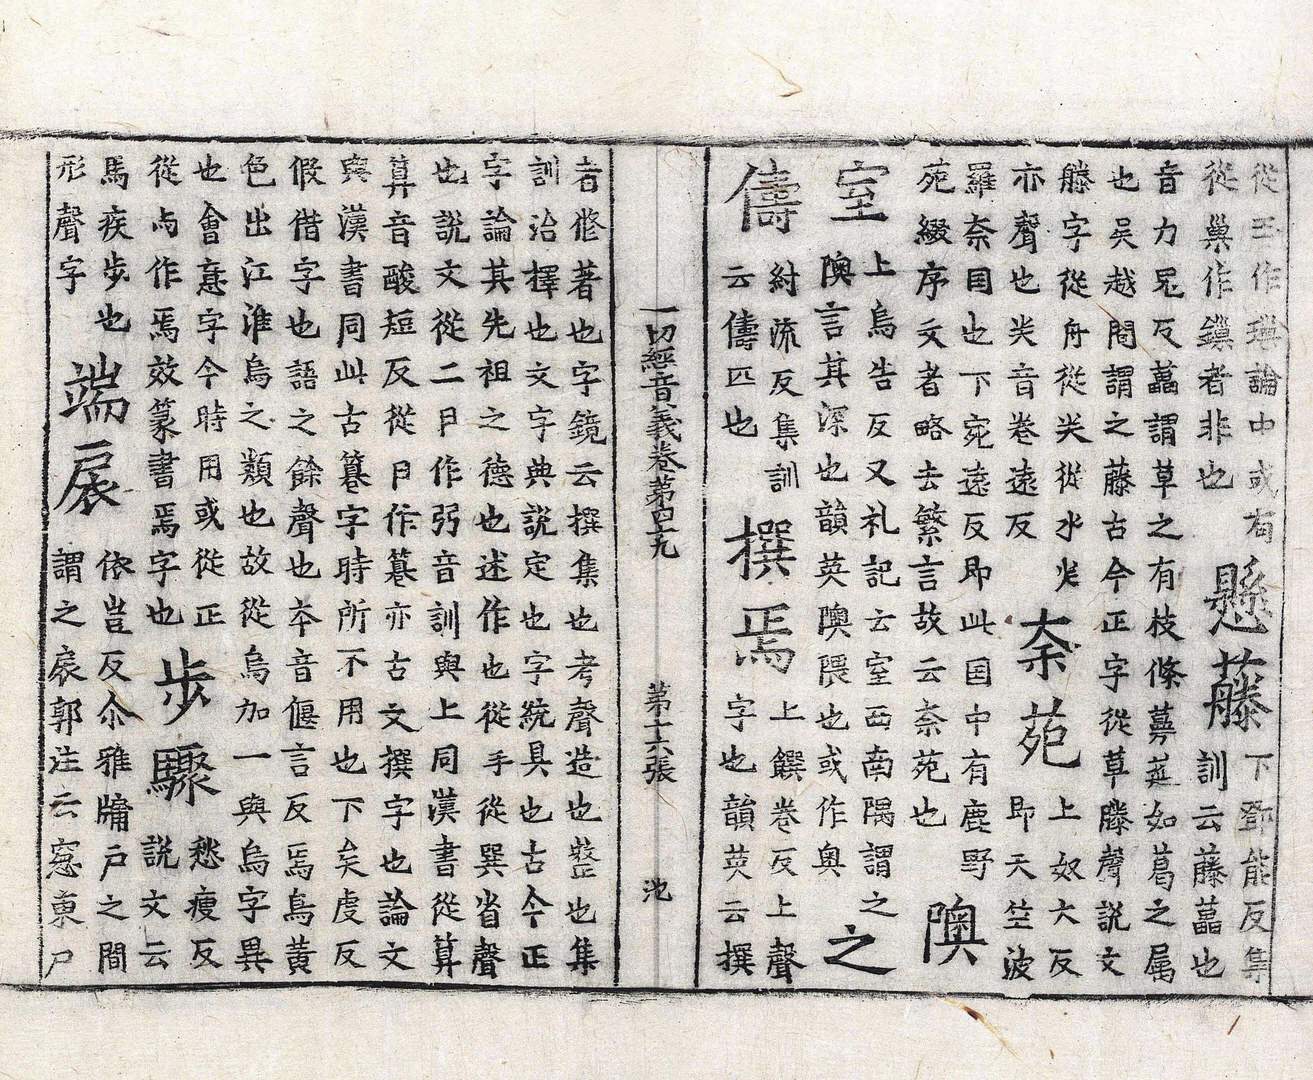 從玉作璂論中或有
從巢作鏁者非也
懸藤
下鄧能反集
訓云藤藟也
音力癸反藟謂草之有枝條蔓莚如葛之属
也吴越間謂之藤古今正字從草滕聲說文
滕字從舟從关從水关
亦聲也关音卷遠反
柰苑
上奴大反
即天竺波
羅柰囯也下宛遠反即此囯中有鹿野
苑綴序文者略去繁言故云柰苑也
隩
室
上烏告反又礼記云室西南隅謂之
隩言其深也韻英隩隈也或作奥
之
儔
紂流反集訓
云儔匹也
撰焉
上饌卷反上聲
字也韻英云撰
一切經音義卷第四十九
第十六張
沲
者修著也字鏡云撰集也考聲造也整也集
訓治擇也文字典說定也字統具也古今正
字論其先祖之德也述作也從手從巽省聲
也說文從二卪作弜音訓與上同漢書從算
算音酸短反從卪作篹亦古文撰字也論文
與漢書同此古篹字時所不用也下矣虔反
假借字也語之餘聲也夲音偃言反焉鳥黃
色出江淮烏之類也故從烏加一與烏字異
也會意字今時用或從正
從与作焉效篆書焉字也
步驟
愁瘦反
說文云
馬疾步也
形聲字
端扆
依豈反尒雅牖户之間
謂之扆郭注云窓東户